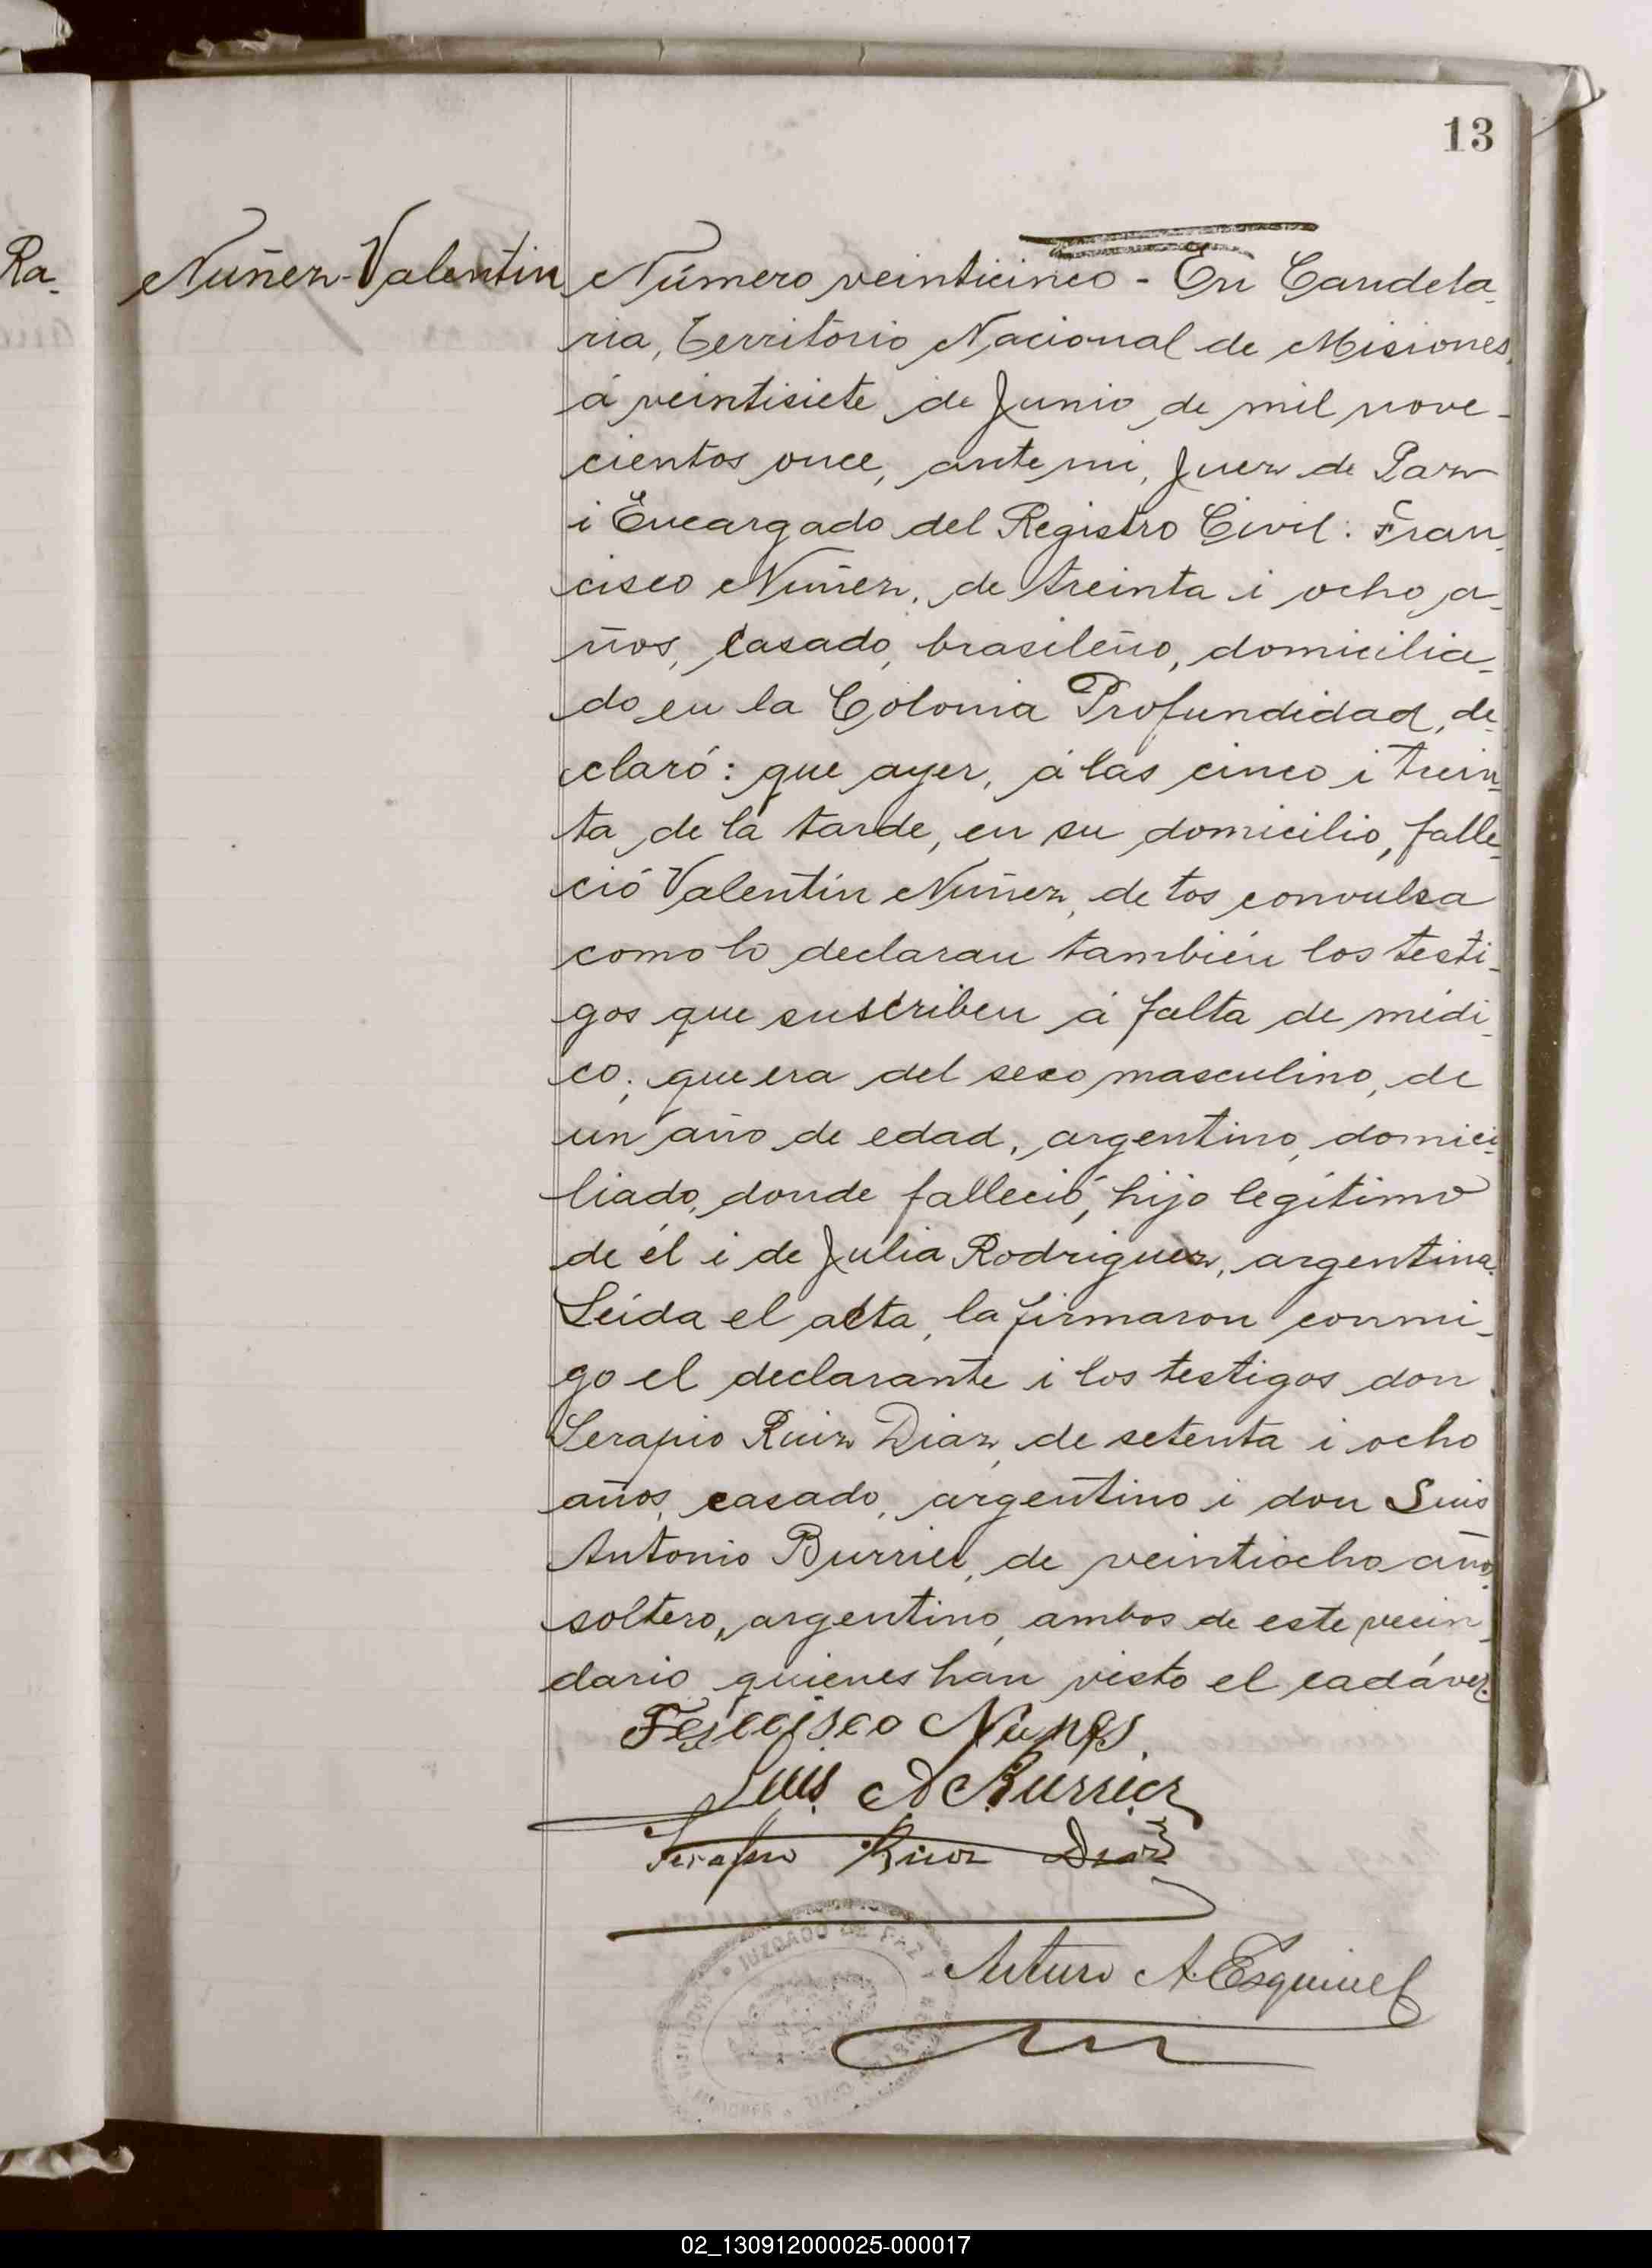 13
Ra-
Nuñez-Valentin
Número veinticinco - En Candela-
ria, Territorio Nacional de Misiones,
á veintisiete de Junio de mil nove-
cientos once, ante mi, Juez de Paz
i Encargado del Registro Civil: Fran-
cisco Nuñez, de treinta i ocho a-
ños, casado, brasileño, domicilia-
do en la Colonia Profundidad, de-
claró: que ayer, á las cinco i trein-
ta de la tarde, en su domicilio, falle-
ció Valentin Nuñez, de tos convulsa
como lo declaran también los testi-
gos que suscriben á falta de médi-
co; que era del sexo masculino, de
un año de edad, argentino, domici-
liado, donde falleció, hijo legítimo
de él i de Julia Rodriguez, argentina.
Leida el acta, la firmaron conmi-
go el declarante i los testigos don
Serapio Ruiz Diaz, de setenta i ocho
años, casado, argentino i don Luis
Antonio Burrier, de veintiocho años,
soltero, argentino, ambos de este vecin-
dario quienes han visto el cadáver.
Nunes
Luis A Burrier
Serapio Ruiz Diaz
JUZGADO DE PAZ
Arturo A. Esquivel
02_130912000025-000017